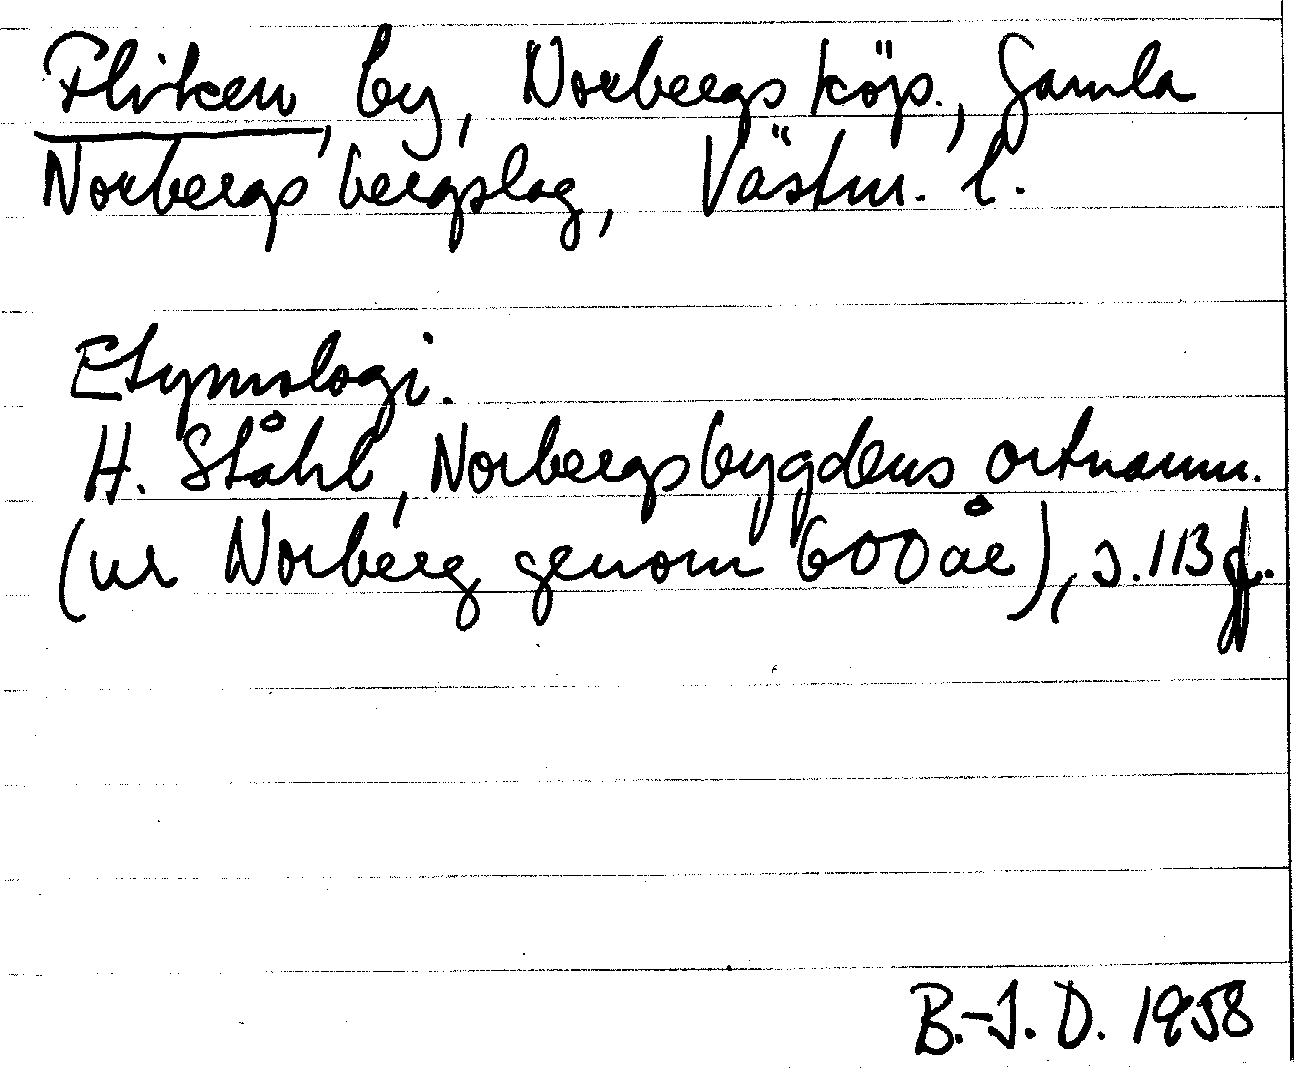 Fliken, by, Norbergs köp., Gamla
Norbergs bergslag, Västm. l.
Etymologi.
H. Ståhl, Norbergsbygdens ortnamn.
(ur Norberg genom 600 år), s. 113 f.
B.-J. D. 1958